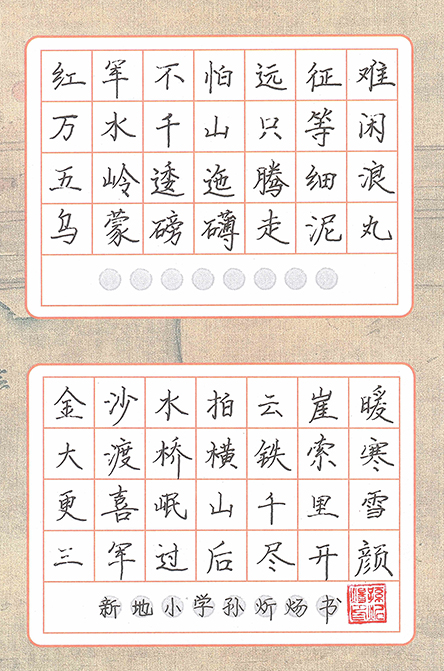 红军不怕远征难
万水千山只等闲
五岭逶迤腾细浪
乌蒙磅礴走泥丸
金沙水拍云崖暖
大渡桥横铁索寒
更喜岷山千里雪
三军过后尽开颜
新地小学孙炘炀书